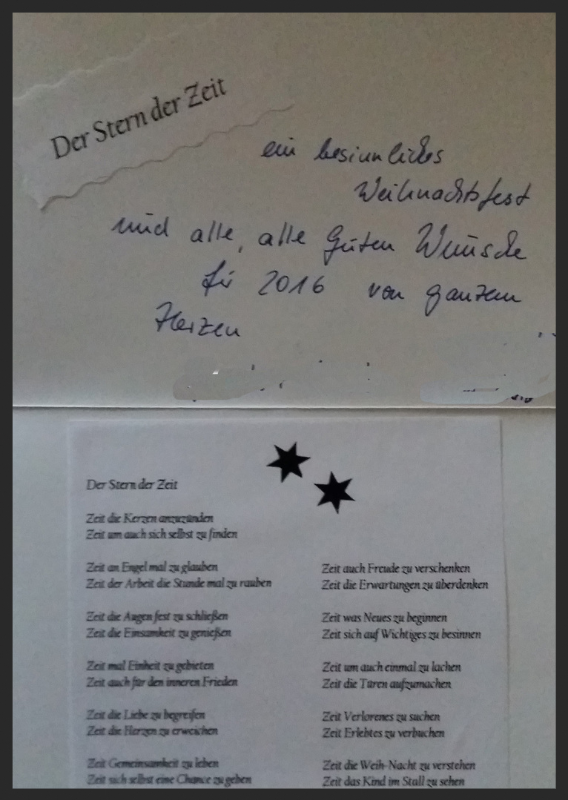 Der Stern der Zeit
ein besinnliches
Weihnachtsfest
und alle, alle Guten Wünsche
für 2016 von ganzem
Herzen
Der Stern der Zeit
Zeit die Kerzen anzuzünden
Zeit um auch sich selbst zu finden
Zeit an Engel mal zu glauben
Zeit der Arbeit die Stunde mal zu rauben
Zeit die Augen fest zu schließen
Zeit die Einsamkeit zu genießen
Zeit mal Einheit zu gebieten
Zeit auch für den inneren Frieden
Zeit die Liebe zu begreifen
Zeit die Herzen zu erweichen
Zeit Gemeinsamkeit zu leben
Zeit sich selbst eine Chance zu geben
Zeit auch Freude zu verschenken
Zeit die Erwartungen zu überdenken
Zeit was Neues zu beginnen
Zeit sich auf Wichtiges zu besinnen
Zeit um auch einmal zu lachen
Zeit die Türen aufzumachen
Zeit Verlorenes zu suchen
Zeit Erlebtes zu verbuchen
Zeit die Weih-Nacht zu verstehen
Zeit das Kind im Stall zu sehen